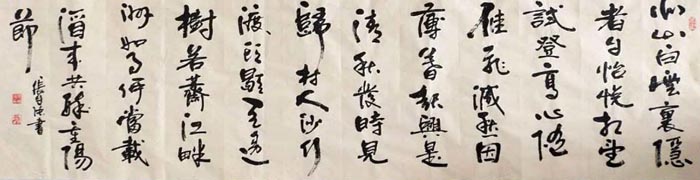 北山白雲裏隱
者自怡悦相望
試登高心隨
雁飛滅愁因
薄暮起興是
清秋發時見
歸村人沙行
渡頭歇天邊
樹若薺江畔
洲如月何當載
酒来共醉重陽
節